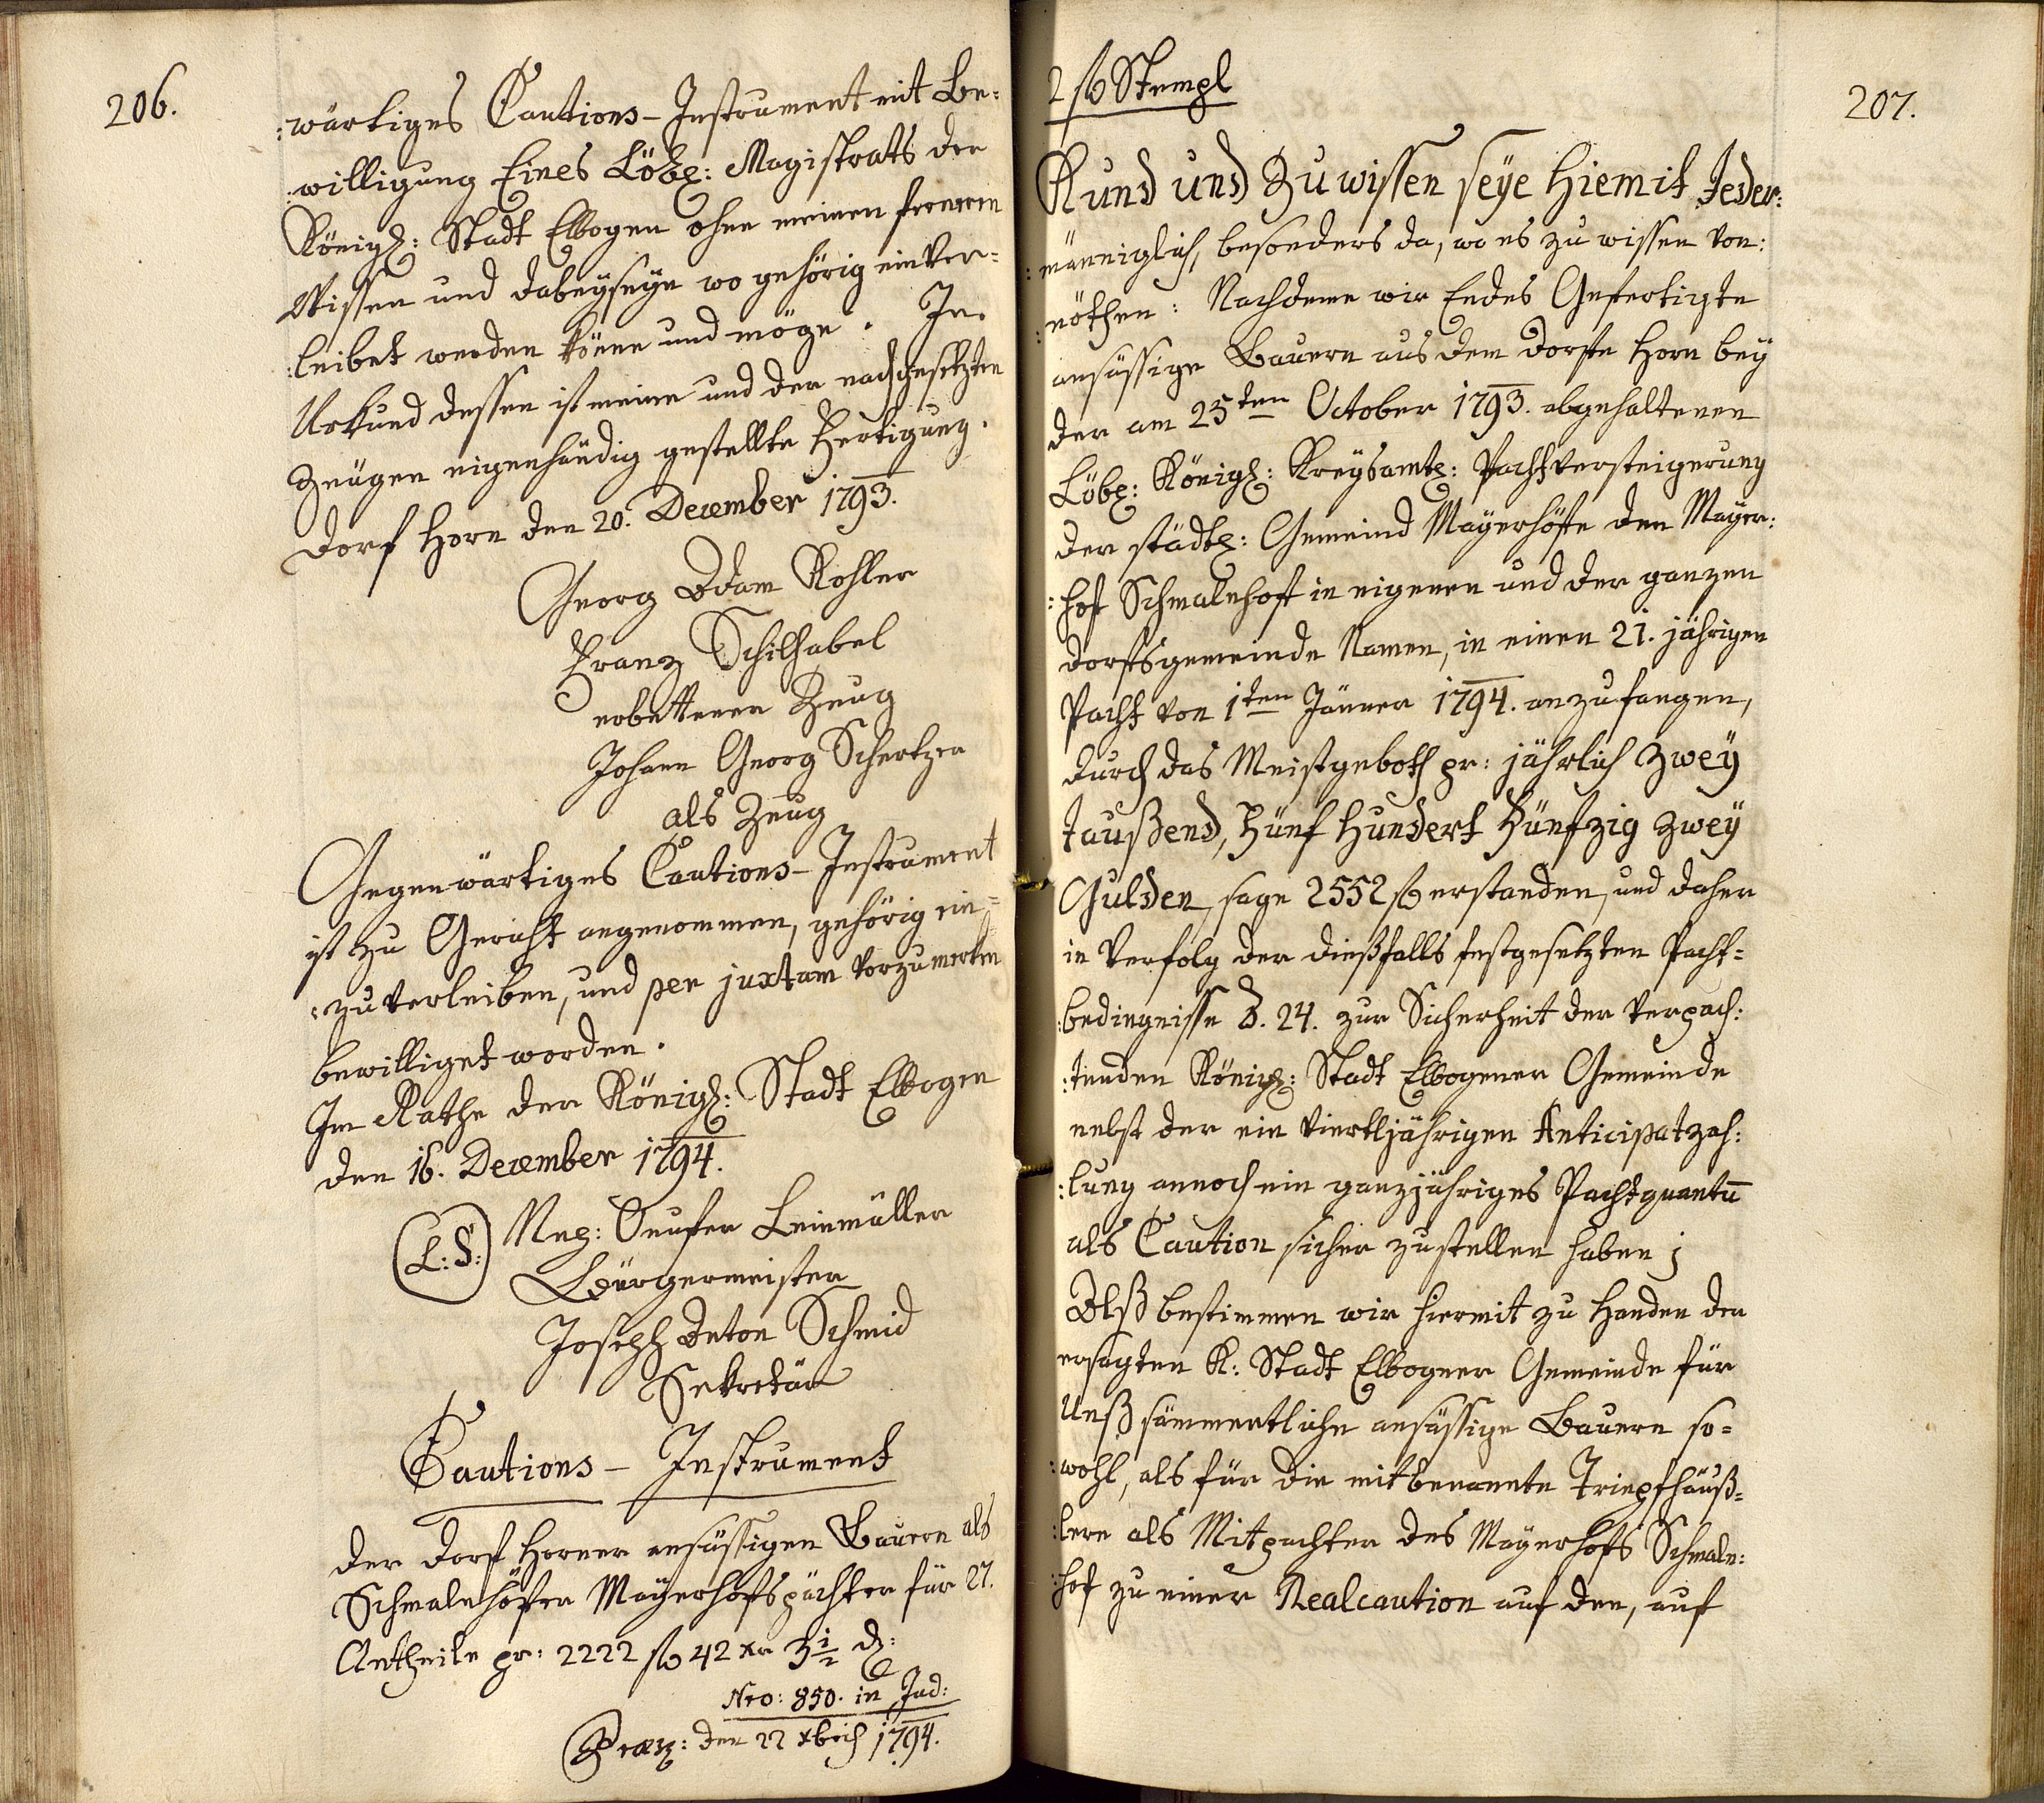 206.
:wärtiges Cautions-Instrument mit Be=
:willigung Eines Löbl: Magistrats der
Königl: Stadt Elbogen ohne meinen ferneren
Wissen und dabeyseyn wo gehörig einver=
:leibet werden könne und möge. In
Urkund dessen ist meine und der nachgesetzten
Zeugen eigenhändig gestellte Fertigung.
Dorf Horn den 20. December 1793.
Georg Adam Kohler
Franz Schilhabel
erbettener Zeug
Johann Georg Schertzer
als Zeug
Gegenwärtiges Cautions-Instrument
ist zu Gericht angenommen, gehörig ein=
:zuverleiben, und per juxtam vorzumerken
bewilliget worden.
Im Rathe der Königl: Stadt Elbogen
den 16. December 1794.
(L:S:) Bürgermeister
Joseph Anton Schmid
Sekretär
Cautions- Instrument
Der Dorf Horner ansässigen Bauern als
Schmalnhöfer Mayerhofspächter für 27.
Antheile pr: 2222 f 42 xr 3 1/2 d:
Nro: 850. in Jud:
Praes: den 22 xbris 1794.
207.
2 f Stempl
Kund und Zu wissen seye Hiemit Jeder:
:männiglich, besonders da, wo es zu wissen von:
:nöthen: Nachdeme wir Endes Gefertigte
ansässige Bauern aus dem Dorfe Horn bey
der am 25ten October 1793. abgehaltenen
Löbl: Königl: Kreysamtl: Pachtversteigerung
der städtl: Gemeind Mayerhöfe den Mayer:
:hof Schmalnhof in eigenen und der ganzen
Dorfsgemeinde Namen, in einen 21. jährigen
Pacht von 1ten Jänner 1794. anzufangen,
durch das Meistgeboth pr: jährlich Zwey
taußend, Fünf Hundert Fünfzig Zwey
Gulden, sage 2552 f erstanden, und daher
in Verfolg der dießfalls festgesetzten Pacht=
:bedingnisse §. 24. zur Sicherheit der verpach:
:tenden Königl: Stadt Elbogener Gemeinde
nebst der ein Viertljährigen Anticipatzah:
:lung annoch ein ganzjähriges Pachtquantū
als Caution sicher zustellen haben;
Alß bestimmen wir hiermit zu Handen der
ersagten K: Stadt Elbogner Gemeinde für
Unß sämmentliche ansässige Bauern so=
:wohl, als für die mitbenannte Tripfhäuß=
:lern als Mitpachter des Mayerhofs Schmaln:
:hof zu einer Realcaution auf den, auf